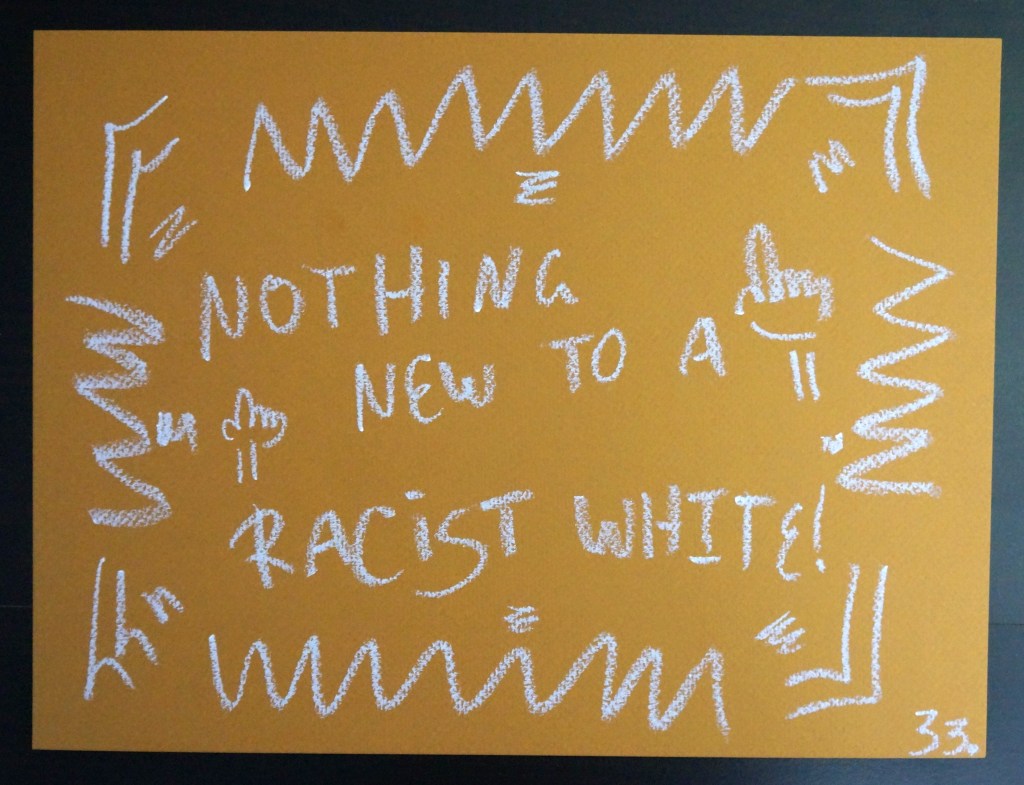 NOTHING
NEW TO A
RACIST WHITE!
33.